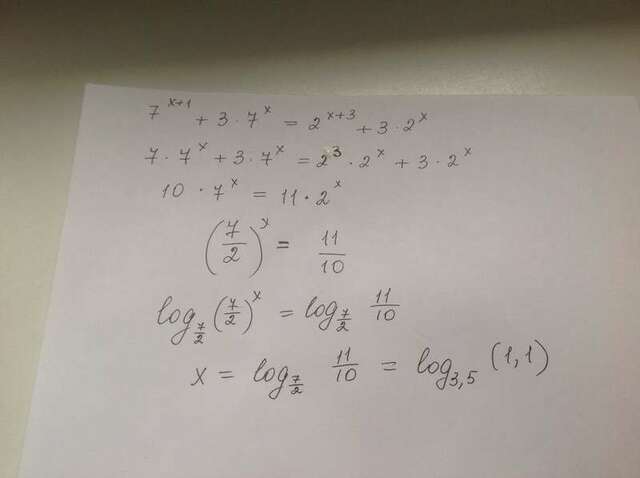 7^{x+1} + 3 · 7^x = 2^{x+3} + 3 · 2^x
7 · 7^x + 3 · 7^x = 2^3 · 2^x + 3 · 2^x
10 · 7^x = 11 · 2^x
(7/2)^x = 11/10
log_{7/2} (7/2)^x = log_{7/2} 11/10
x = log_{7/2} 11/10 = log_{3,5} (1,1)